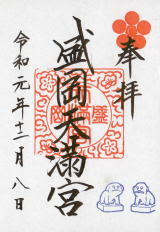 奉拝
盛岡天満宮
令和元年十二月八日